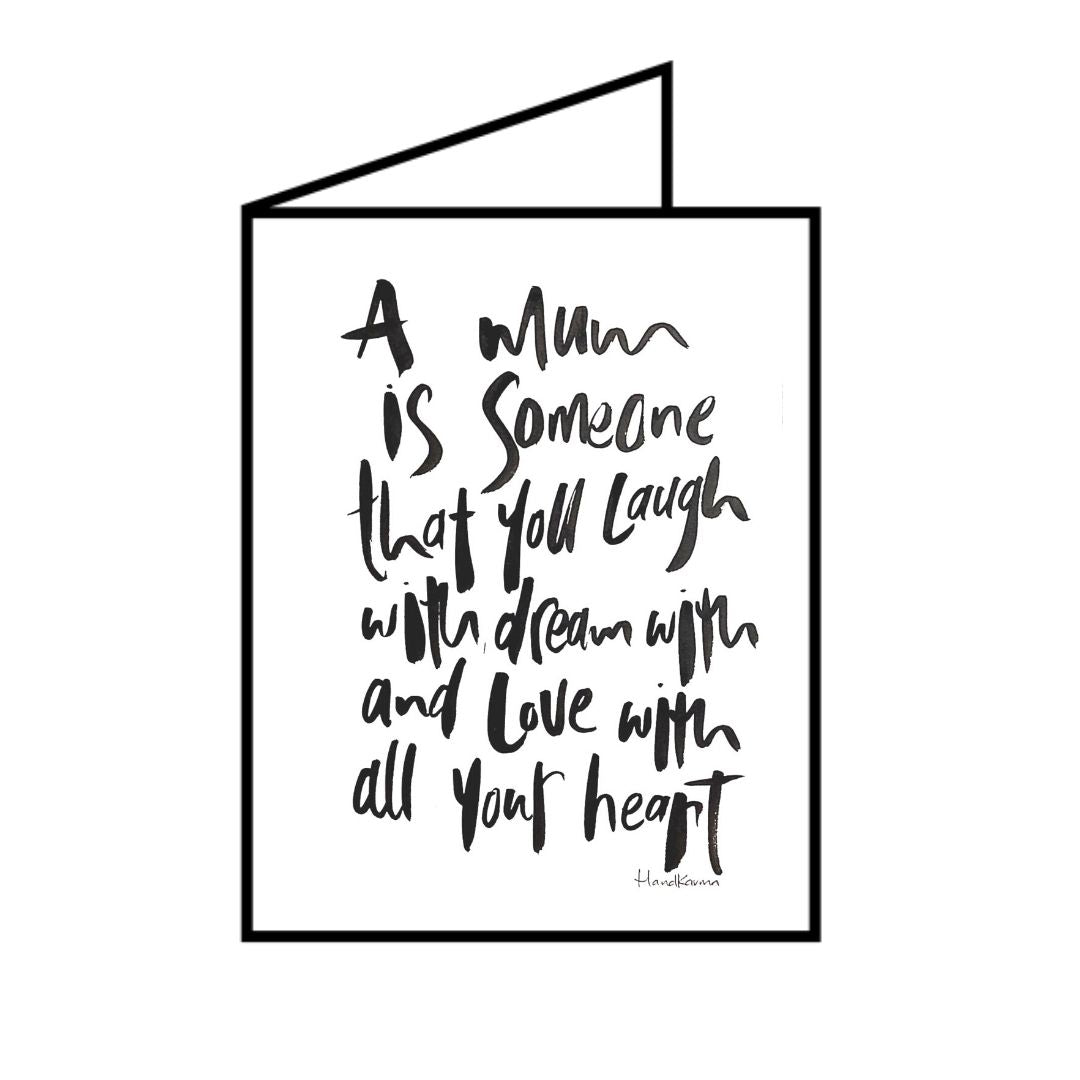 A mum
is someone
that you laugh
with, dream with
and love with
all your heart
HandKarma